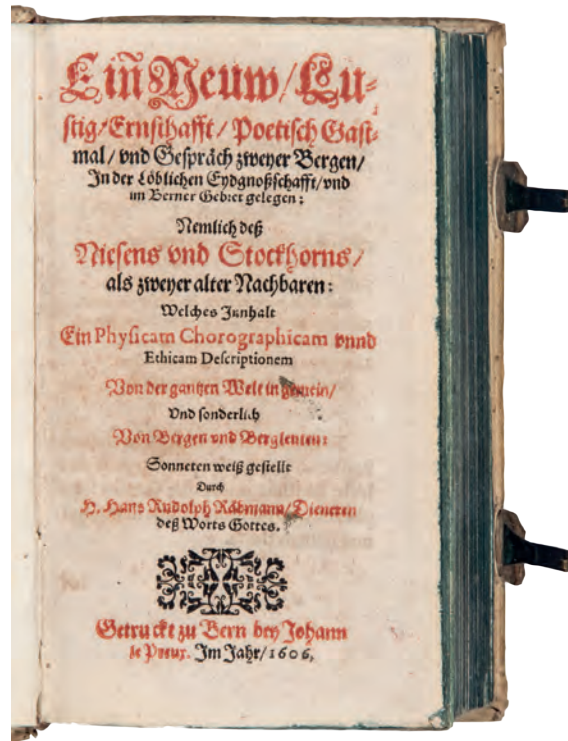 Ein̄ Neuw/ Lu-
stig/ Ernsthafft/ Poetisch Gast-
mal/ vnd Gespräch zweyer Bergen/
In der Löblichen Eydgnoßschafft/ vnd
im Berner Gebiet gelegen:
Nemlich deß
Niesens vnd Stockhorns/
als zweyer alter Nachbaren:
Welches Innhalt
Ein Physicam Chorographicam vnnd
Ethicam Descriptionem
Von der gantzen Welt in gemein/
Vnd sonderlich
Von Bergen vnd Bergleuten:
Sonneten weiß gestellt
Durch
H. Hans Rudolph Räbmann/ Dieneren
deß Worts Gottes.
Getruckt zu Bern bey Johann
le Preux. Im Jahr/ 1606,